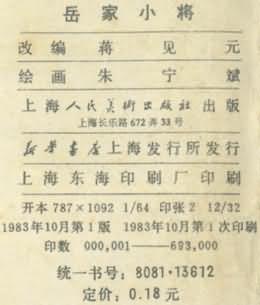 岳家小将
改编 蒋见元
绘画 朱宁斌
上海人民美術出版社 出版
上海长乐路672弄33号
新华書店上海发行所发行
上海东海印刷厂印刷
开本 787×1092 1/64 印张 2 12/32
1983年10月第1版 1983年10月第1次印刷
印数 000,001——693,000
统一书号：8081·13612
定价：0.18元